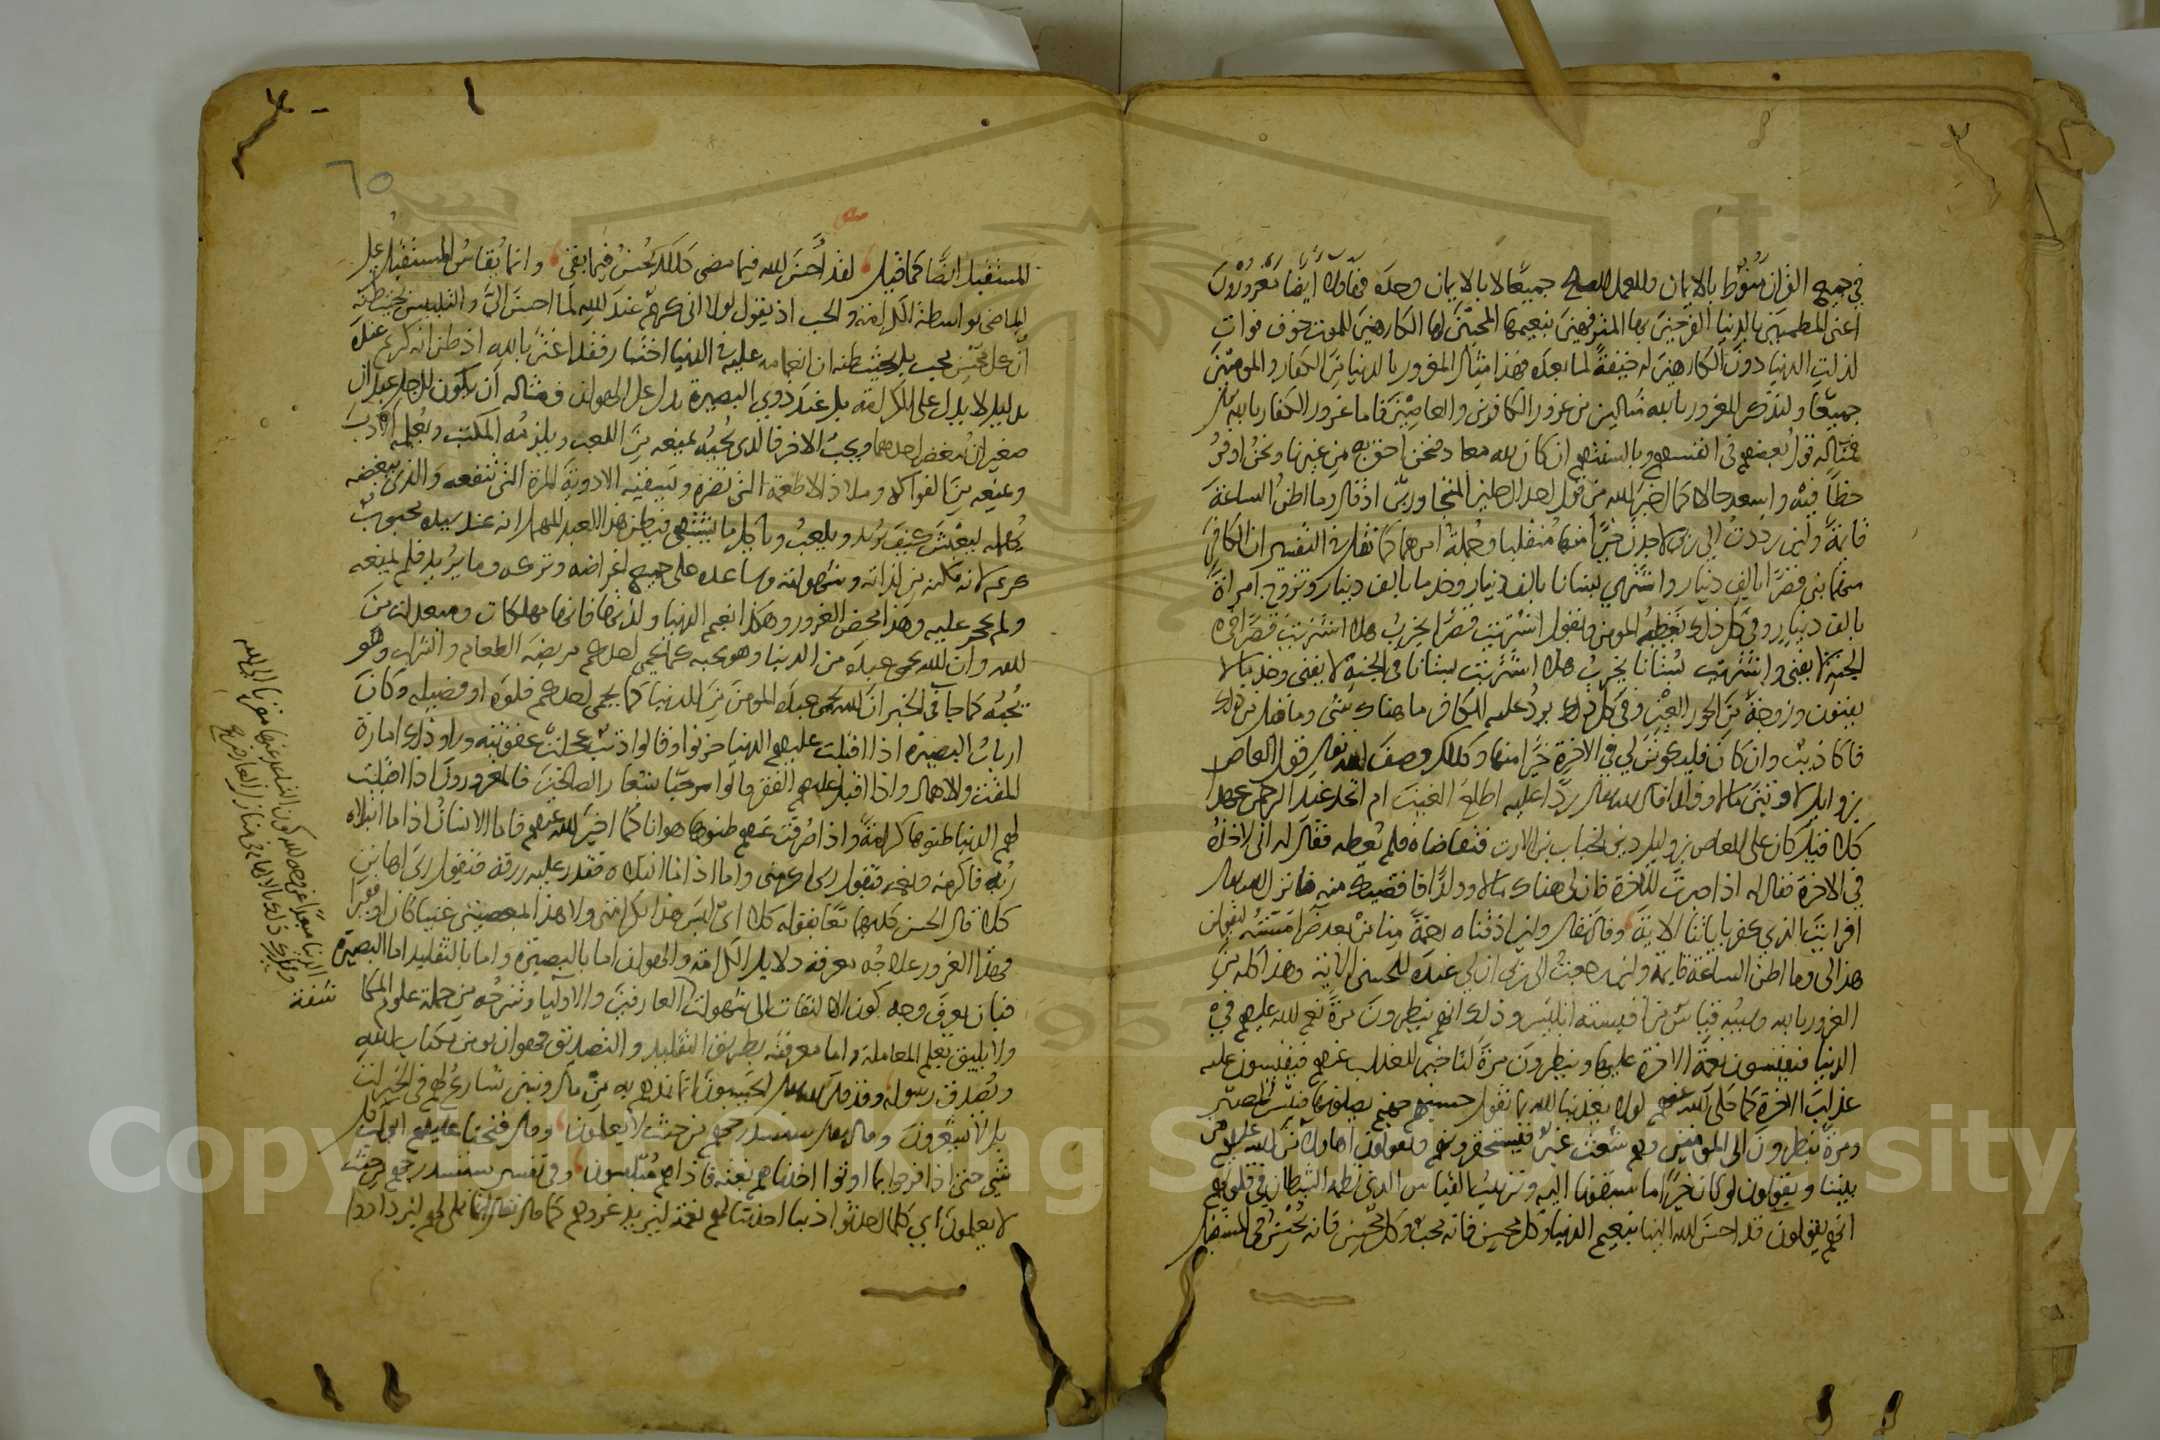 في جميع القرآن منوط بالايمان وللعمل الصالح جميعا لا بالايمان وحده فهاولاء ايضا مغرورون
اعني المطمينين بالدنيا الفرحين بها المترفهين بنعيمها المحبين لها الكارهين للموت خوف فوات
لذات الدنيا دون الكارهين له خيفة لما بعده فهذا مثال الغرور بالدنيا من الكفار والمومنين
جميعا ولنذكر للغرور بالله مثالين من غرور الكافرين والعاصين فاما غرور الكفار بالله
فمثاله قول بعضهم في انفسهم وبالسنتهم ان كان لله معاد فنحن احق به من غيرنا ونحن اوفر
حظا فيه واسعد حالا كما اخبر الله من قول احد الرجلين المتحاورين اذ قال وما اظن الساعة
قايمة ولئن رددت الى ربي لاجدن خيرا منها منقلبا وجملة امرهما كما نقل في التفسير ان الكافر
منهما بنى قصرا بالف دينار واشترى بستانا بالف دينار وخدما بالف دينار وتزوج امراة
بالف دينار وفي كل ذلك يعظه المومن ويقول اشتريت قصرا يخرب هلا اشتريت قصرا في
الجنة لا يفنى واشتريت بستانا يخرب هلا اشتريت بستانا في الجنة لا يفنى وخدما لا
يفنون وزوجة من الحور العين وفي كل ذلك يرد عليه الكافر ما هناك شي وما قيل من ذلك
فاكاذيب وان كان فليكونن لي في الاخرة خيرا منها وكذلك وصف الله تعالى قول العاص
بن وايل لاوتين مالا وولدا فقال الله تعالى ردا عليه اطلع الغيب ام اتخذ عند الرحمن عهدا
كلا قيل كان على العاص بن وايل دين لخباب بن الارت فتقاضاه فلم يعطه فقال له اني لاخذه
في الاخرة فقال له اذا صرت للاخرة فان لي هناك مالا وولدا فاقضيك منه فانزل الله تعالى
افرايت الذي كفر باياتنا الاية وقال تعالى ولئن اذقناه رحمة منا من بعد ضرا مسته ليقولن
هذا لي وما اظن الساعة قايمة ولئن رجعت الى ربي ان لي عنده للحسنى الاية وهذا كله من
الغرور بالله وسببه قياس من اقيسة ابليس وذلك انهم ينظرون مرة نعم الله عليهم في
الدنيا فيقيسون نعمة الاخرة عليها وينظرون مرة لتاخير العذاب عنهم فيقيسون عليه
عذاب الاخرة كما حكى الله عنهم لولا يعذبنا الله بما نقول حسبهم جهنم يصلونها فبئس المصير
ومرة ينظرون الى المومنين وهم شعث غبر فيستحقرونهم ويقولون اهاولاء من الله عليهم من
بيننا ويقولون لو كان خيرا ما سبقونا اليه وترتيب القياس الذي نظمه الشيطان في قلوبهم
انهم يقولون قد احسن الله الينا بنعيم الدنيا وكل محسن فانه محب وكل محسن فانه يحسن في المستقبل
للمستقبل ايضا كما قيل لقد احسن الله فيما مضى كذلك يحسن فيما بقي وانما يقاس المستقبل على
الماضي بواسطة الكرامة والحب اذ يقول لولا اني كريم عند الله لما احسن الي والتلبيس تحت ظنه
ان كل محسن محب بل تحت ظنه ان انعامه عليه في الدنيا احسان فقد اغتر بالله اذ ظن انه كريم عنده
بدليل لا يدل على الكرامة بل عند ذوي البصيرة يدل على الهوان ومثاله ان يكون للرجل عبدان
صغيران يبغض احدهما ويحب الاخر فالذي يحبه يمنعه من اللعب ويلزمه المكتب ويعلمه الادب
ويمنعه من الفواكه وملاذ الاطعمة التي تضره ويسقيه الادوية المرة التي تنفعه والذي يبغضه
يهمله ليعيش كيف يريد ويلعب وياكل ما يشتهي فيظن هذا العبد المهمل انه عند سيده محبوب
كريم لانه مكنه من لذاته وشهواته وساعده على جميع اغراضه وتركه وما يريد فلم يمنعه
ولم يحجر عليه وهذا محض الغرور وهكذا نعيم الدنيا ولذاتها فانها مهلكات ومبعدات من
الله وان الله يحمي عبده من الدنيا وهو يحبه كما يحمي احدكم مريضه الطعام والشراب وهو
يحبه كما جا في الخبر ان الله يحمي عبده المومن من الدنيا كما يحمي احدكم فلوه او فصيله وكان
ارباب البصيرة اذا اقبلت عليهم الدنيا حزنوا وقالوا ذنب عجلت عقوبته وراوا ذلك امارة
المقت والاهمال واذا اقبل عليهم الفقر قالوا مرحبا بشعار الصالحين فالمغرورون اذا اقبلت
لهم الدنيا ظنوها كرامة واذا صرفت عنهم ظنوها هوانا كما اخبر الله عنهم فاما الانسان اذا ما ابتلاه
ربه فاكرمه ونعمه فيقول ربي اكرمني واما اذا ما ابتلاه فقدر عليه رزقه فيقول ربي اهانن
كلا قال الحسن كذبهما معا بقوله كلا اي ليس هذا بكرامتي ولا هذا غنيا كان او فقيرا
فهذا الغرور علاجه معرفة دلايل الكرامة والهوان اما بالبصيرة واما بالتقليد اما البصيرة
فبان يعرف وجه كون الالتفات الى شهوات العارفين والاوليا وشرحه من جملة علوم المكا
ولا يليق بعلم المعاملة واما معرفته بطريق التقليد والتصديق فهو ان يومن بكتاب الله
ويصدق رسوله وقد قال الله تعالى ايحسبون انما نمدهم به من مال وبنين نسارع لهم في الخيرات
بل لا يشعرون وقال تعالى سنستدرجهم من حيث لا يعلمون وقال فتحنا عليهم ابواب كل
شي حتى اذا فرحوا بما اوتوا اخذناهم بغتة فاذا هم مبلسون وفي تفسير سنستدرجهم من حيث
لا يعلمون اي كلما احدثوا ذنبا احدثنا لهم نعمة ليزيد غرورهم كما قال تعالى انما نملي لهم ليزدادوا
شفة